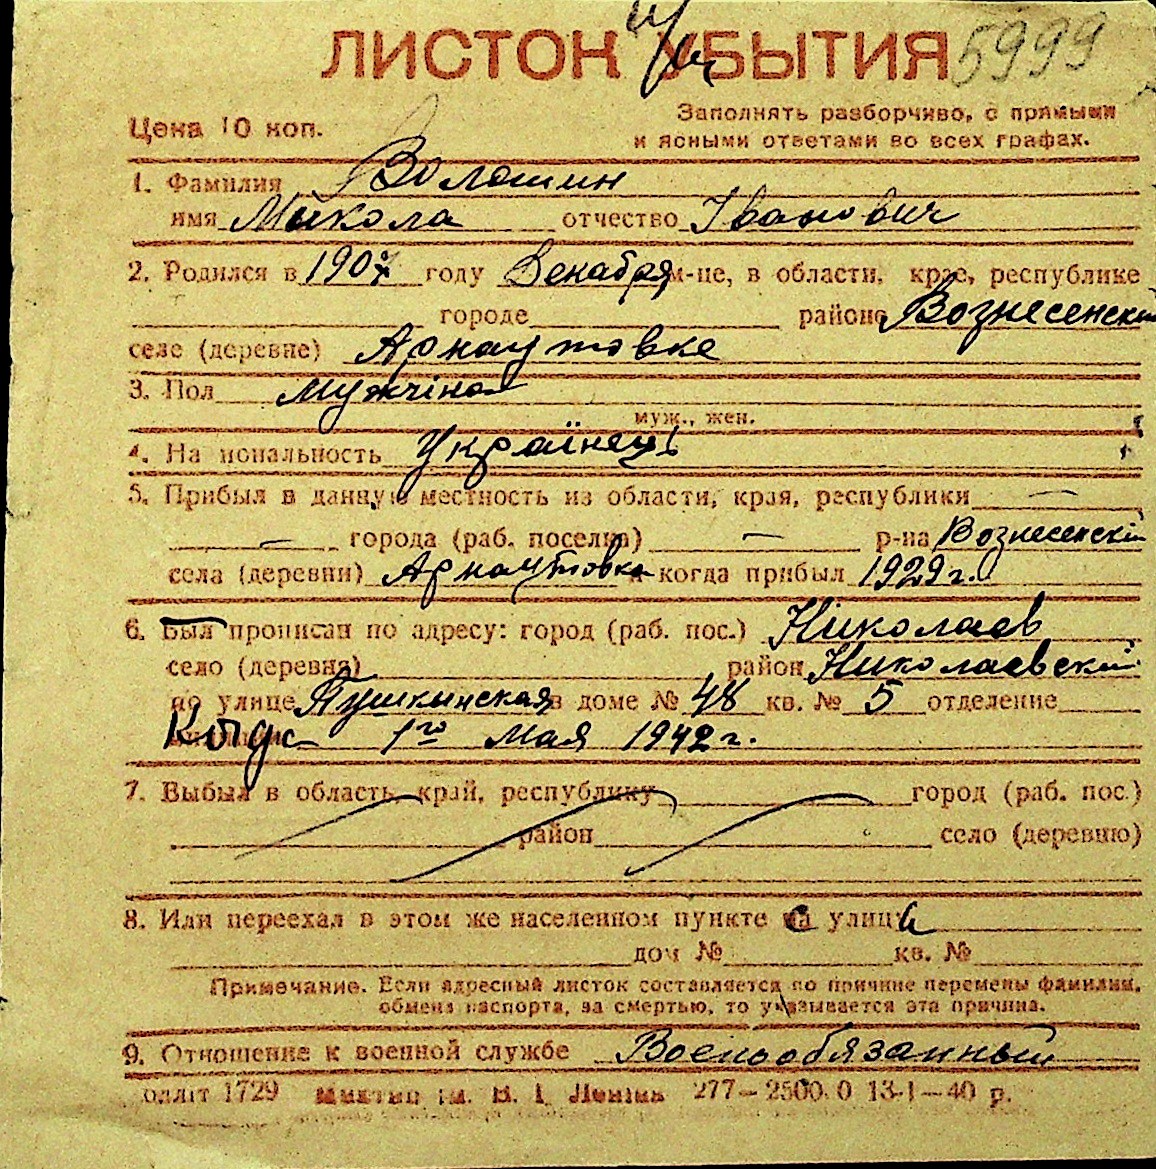 ЛИСТОК УБЫТИЯ 5999
Цена 10 коп.
Заполнять разборчиво, с прямыми
и ясными ответами во всех графах.
1. Фамилия Волошин
имя Микола отчество Іванович
2. Родился в 1907 году Декабря м-це, в области, крае, республике
городе районе Вознесенский
селе (деревне) Арнаутовке
3. Пол мужчіна
муж., жен.
4. Национальность Українець
5. Прибыл в данную местность из области, края, республики —
— города (раб. поселка) — р-на Вознесенскій
села (деревни) Арнаутовка и когда прибыл 1929 г.
6. Был прописан по адресу: город (раб. пос.) Николаев
село (деревня) район Николаевский
по улице Пушкинская в доме № 48 кв. № 5 отделение
Когда 1го мая 1942 г.
7. Выбыл в область, край, республику город (раб. пос.)
район село (деревню)
8. Или переехал в этом же населенном пункте с улицы
дом № кв. №
Примечание. Если адресный листок составляется по причине перемены фамилии,
обмена паспорта, за смертью, то указывается эта причина.
9. Отношение к военной службе Военообязанный
1729 ім. В. І. Леніна 277—2500.0 13-1—40 р.